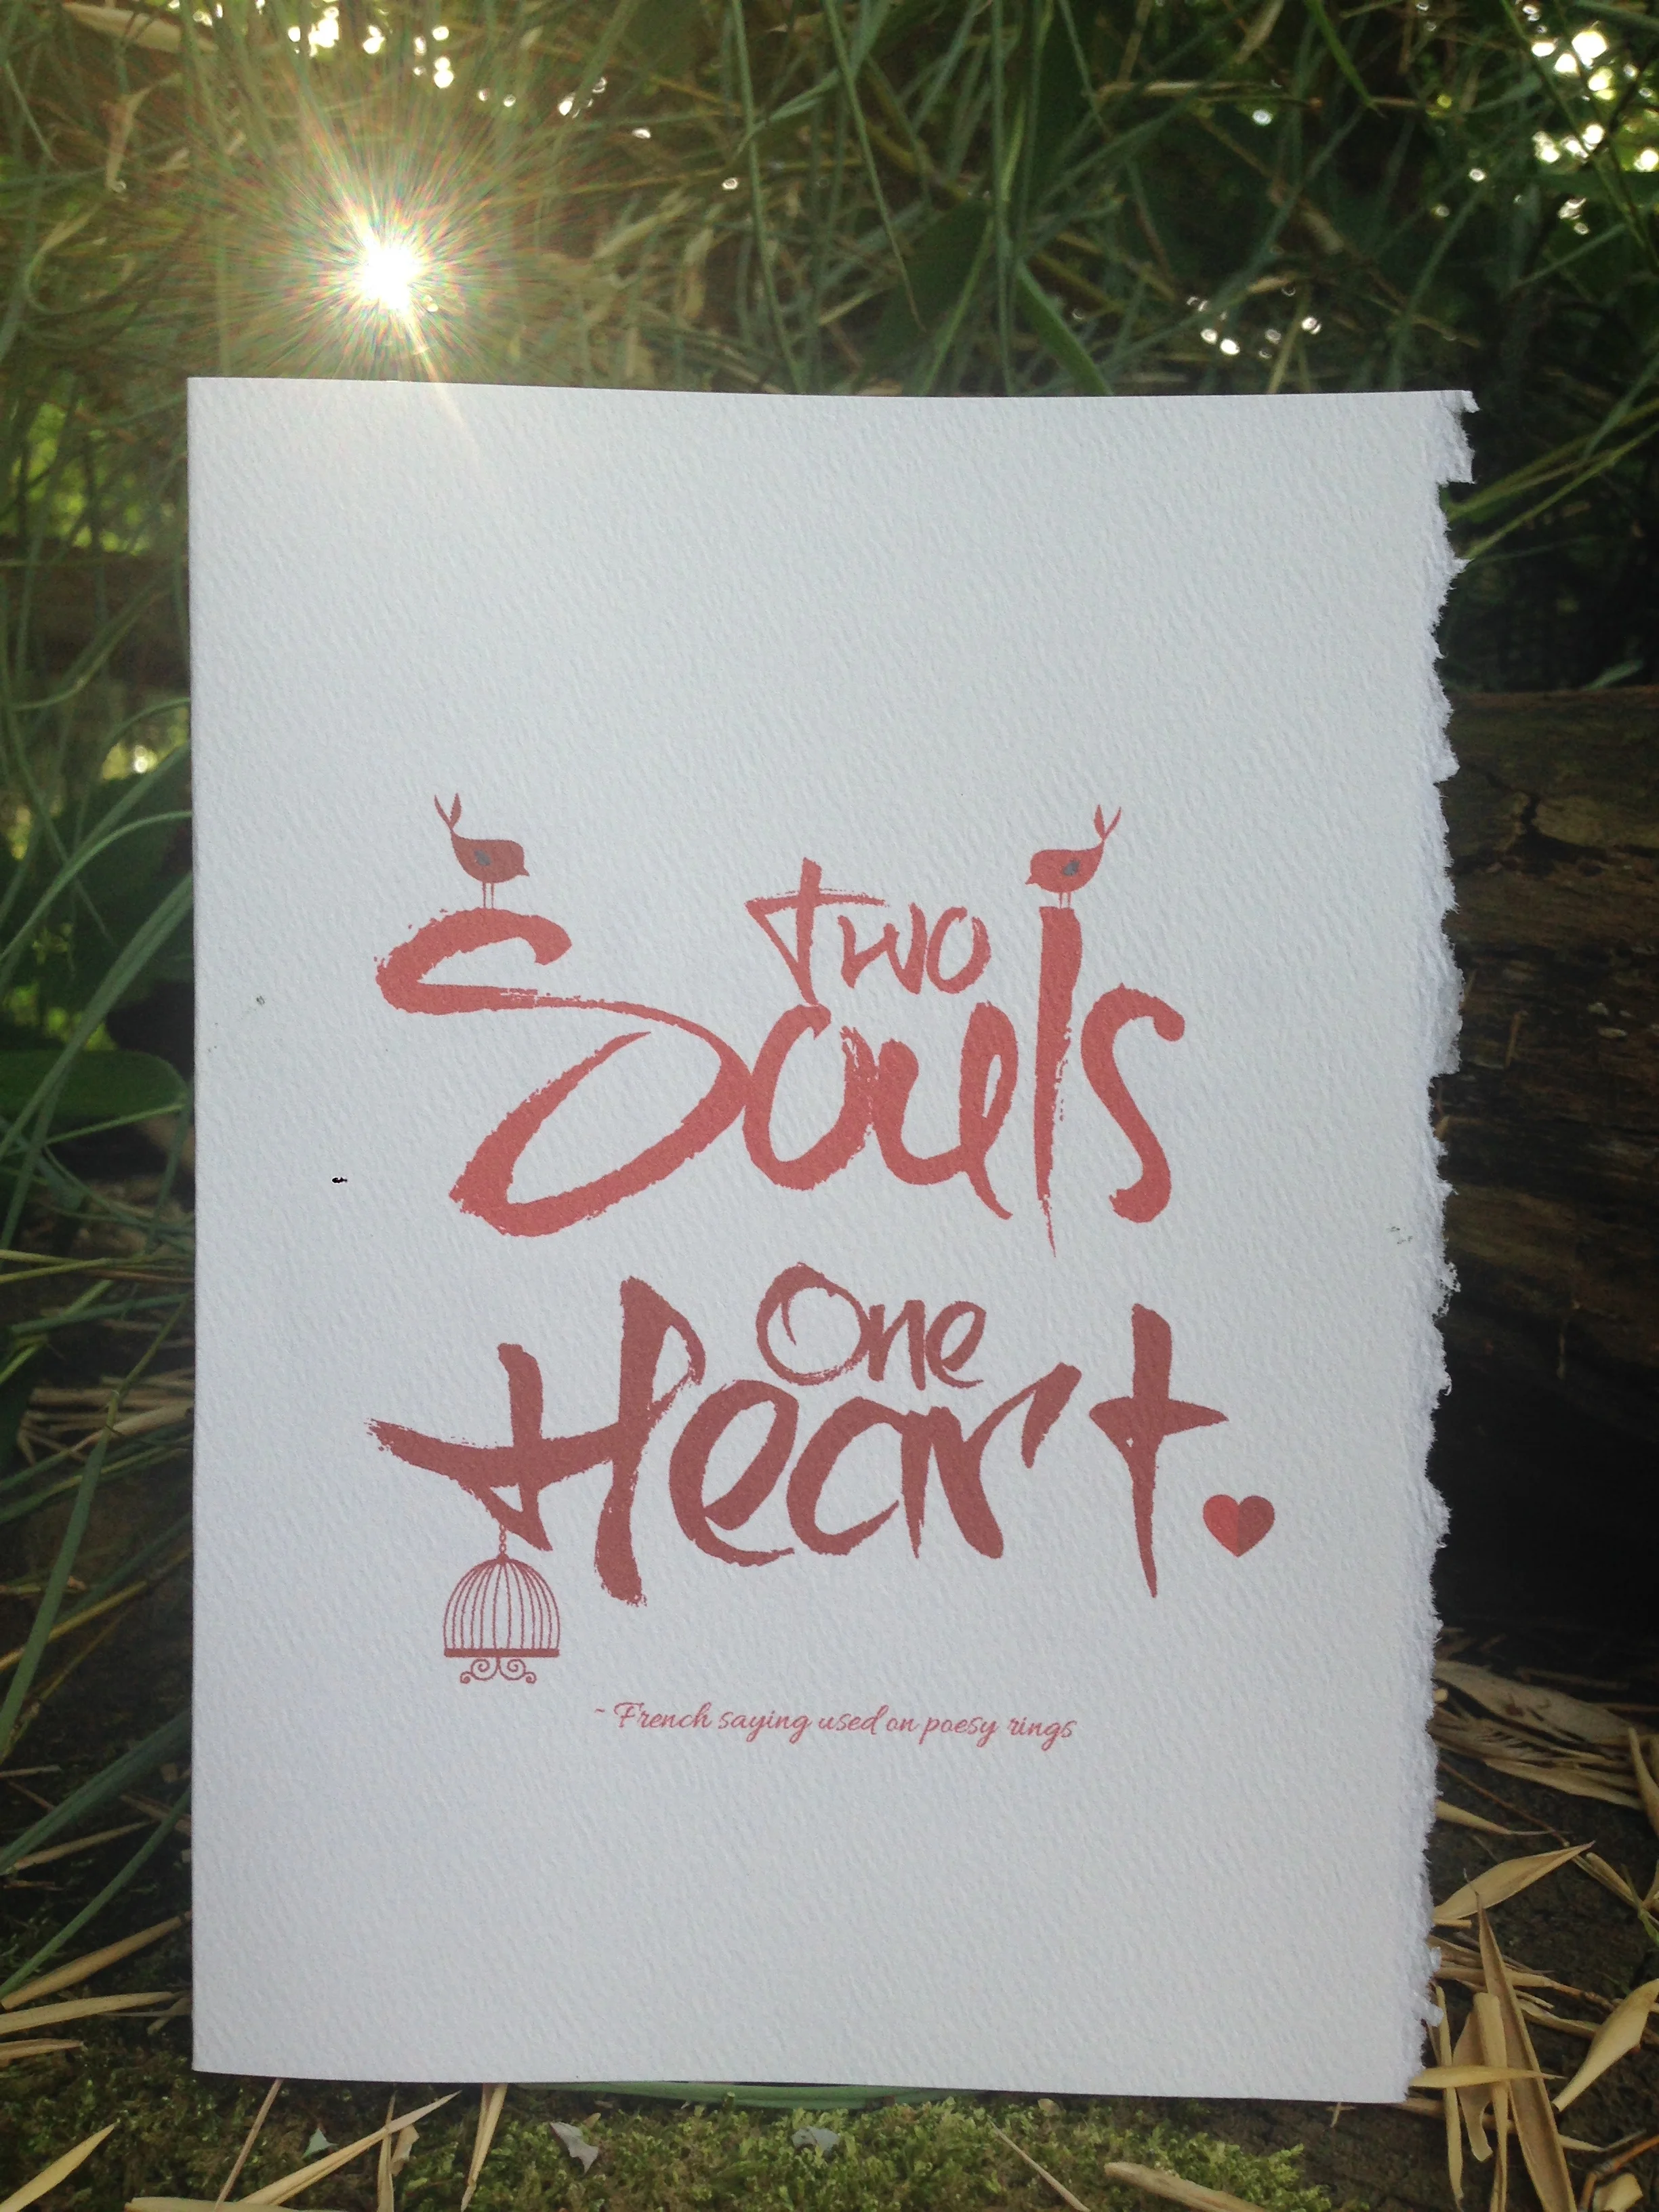 Two
Souls
One
Heart.
~ French saying used on poesy rings